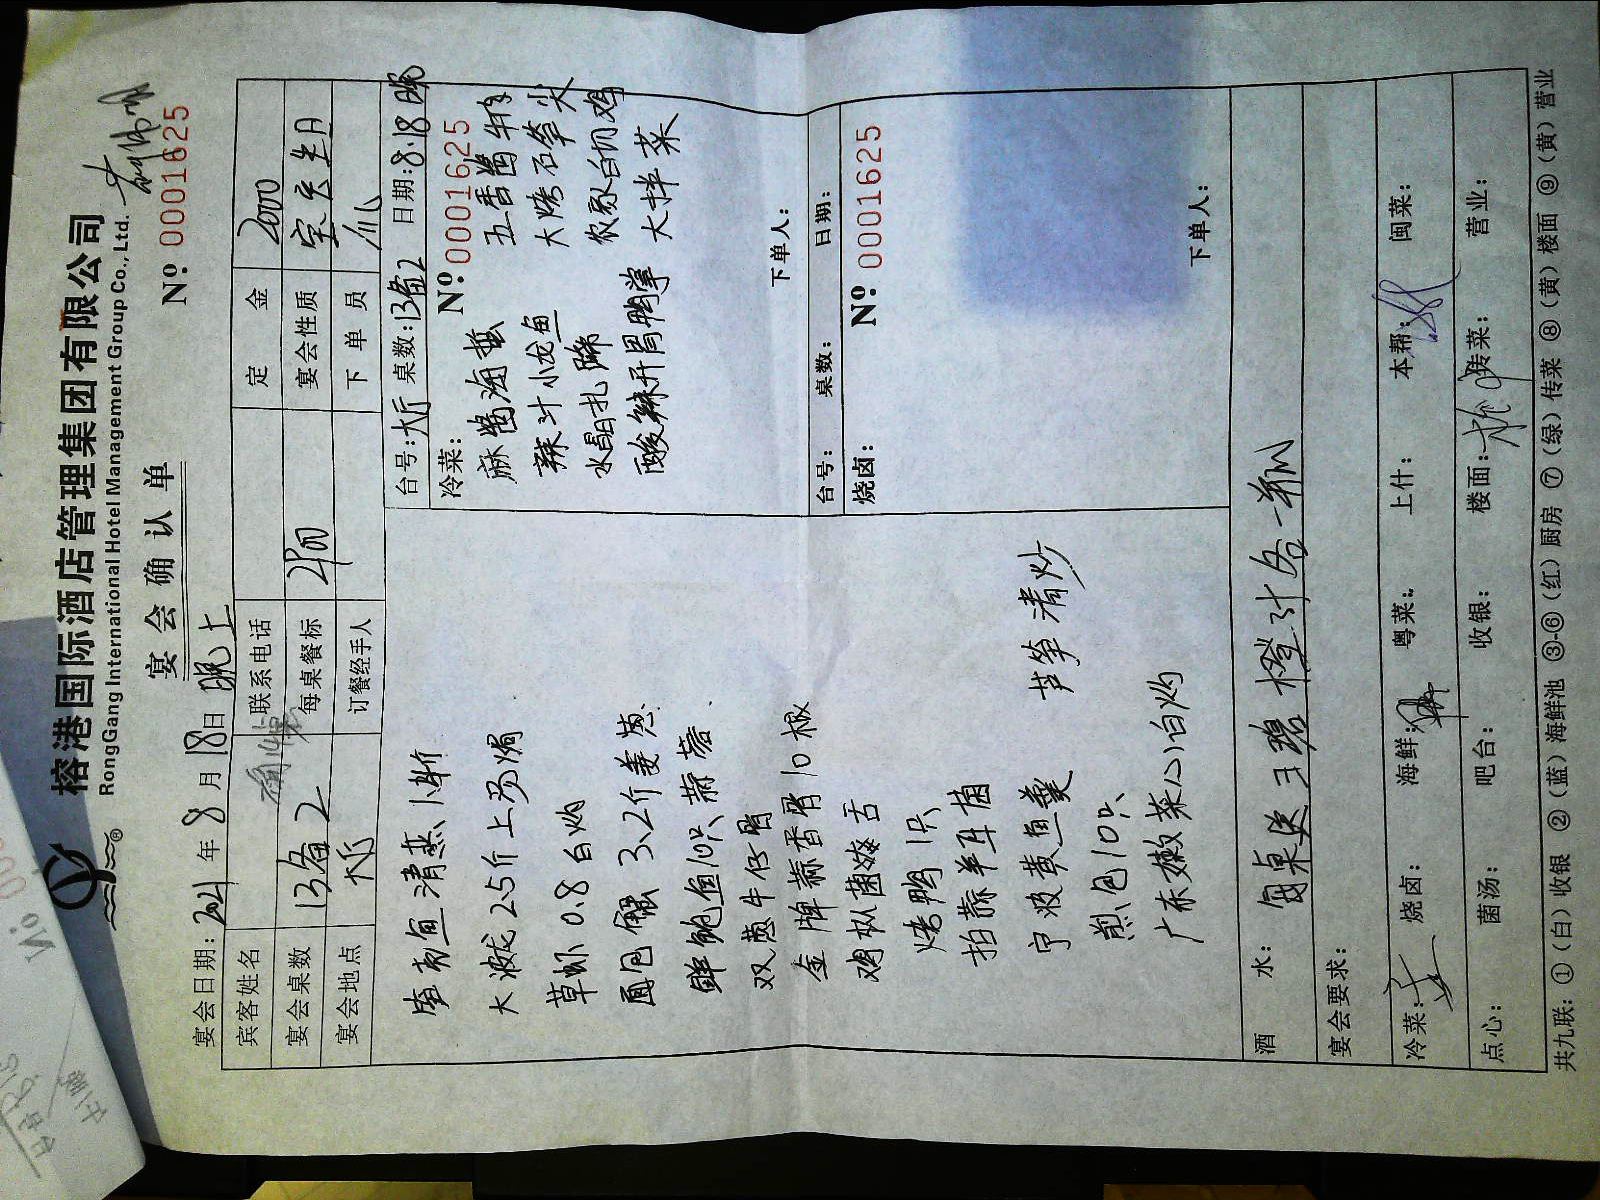 榕港国际酒店管理集团有限公司
RongGang International Hotel Management Group Co., Ltd.
宴会确认单
Nº: 0001625
宴会日期: 2021年8月18日晚上
宾客姓名 联系电话 定金 2000
宴会桌数 13备2 每桌餐标 宴会性质 宝宝生日
宴会地点 大厅 订餐经手人 下单员
台号: 大厅 桌数: 13备2 日期: 8.18晚
冷菜: Nº: 0001625
麻酱海蜇 五香酱牛肉
辣汁小龙鱼 大烤石笋尖
水晶扎蹄 农家白切鸡
酸辣开胃鸭掌 大拌菜
下单人:
台号: 桌数: 日期:
烧卤: Nº: 0001625
下单人:
清蒸1斤
大波龙2.5斤上汤焗
草虾0.8白灼
面包蟹3.2斤姜葱
鲜鲍鱼10只蒜蓉
双葱牛仔骨
金牌蒜香骨10根
鸡枞菌
烤鸭1只
拍蒜羊耳菌
宁波黄鱼羹 芦笋清炒
煎包10只
广东嫩菜心白灼
酒水: 每桌送 王碧 橙汁各一瓶
宴会要求:
冷菜: 烧卤: 海鲜: 粤菜: 上什: 本帮: 闽菜:
点心: 菌汤: 吧台: 收银: 楼面: 传菜: 营业:
共九联: ①(白)收银 ②(蓝)海鲜池 ③-⑥(红)厨房 ⑦(绿)传菜 ⑧(黄)楼面 ⑨(黄)营业